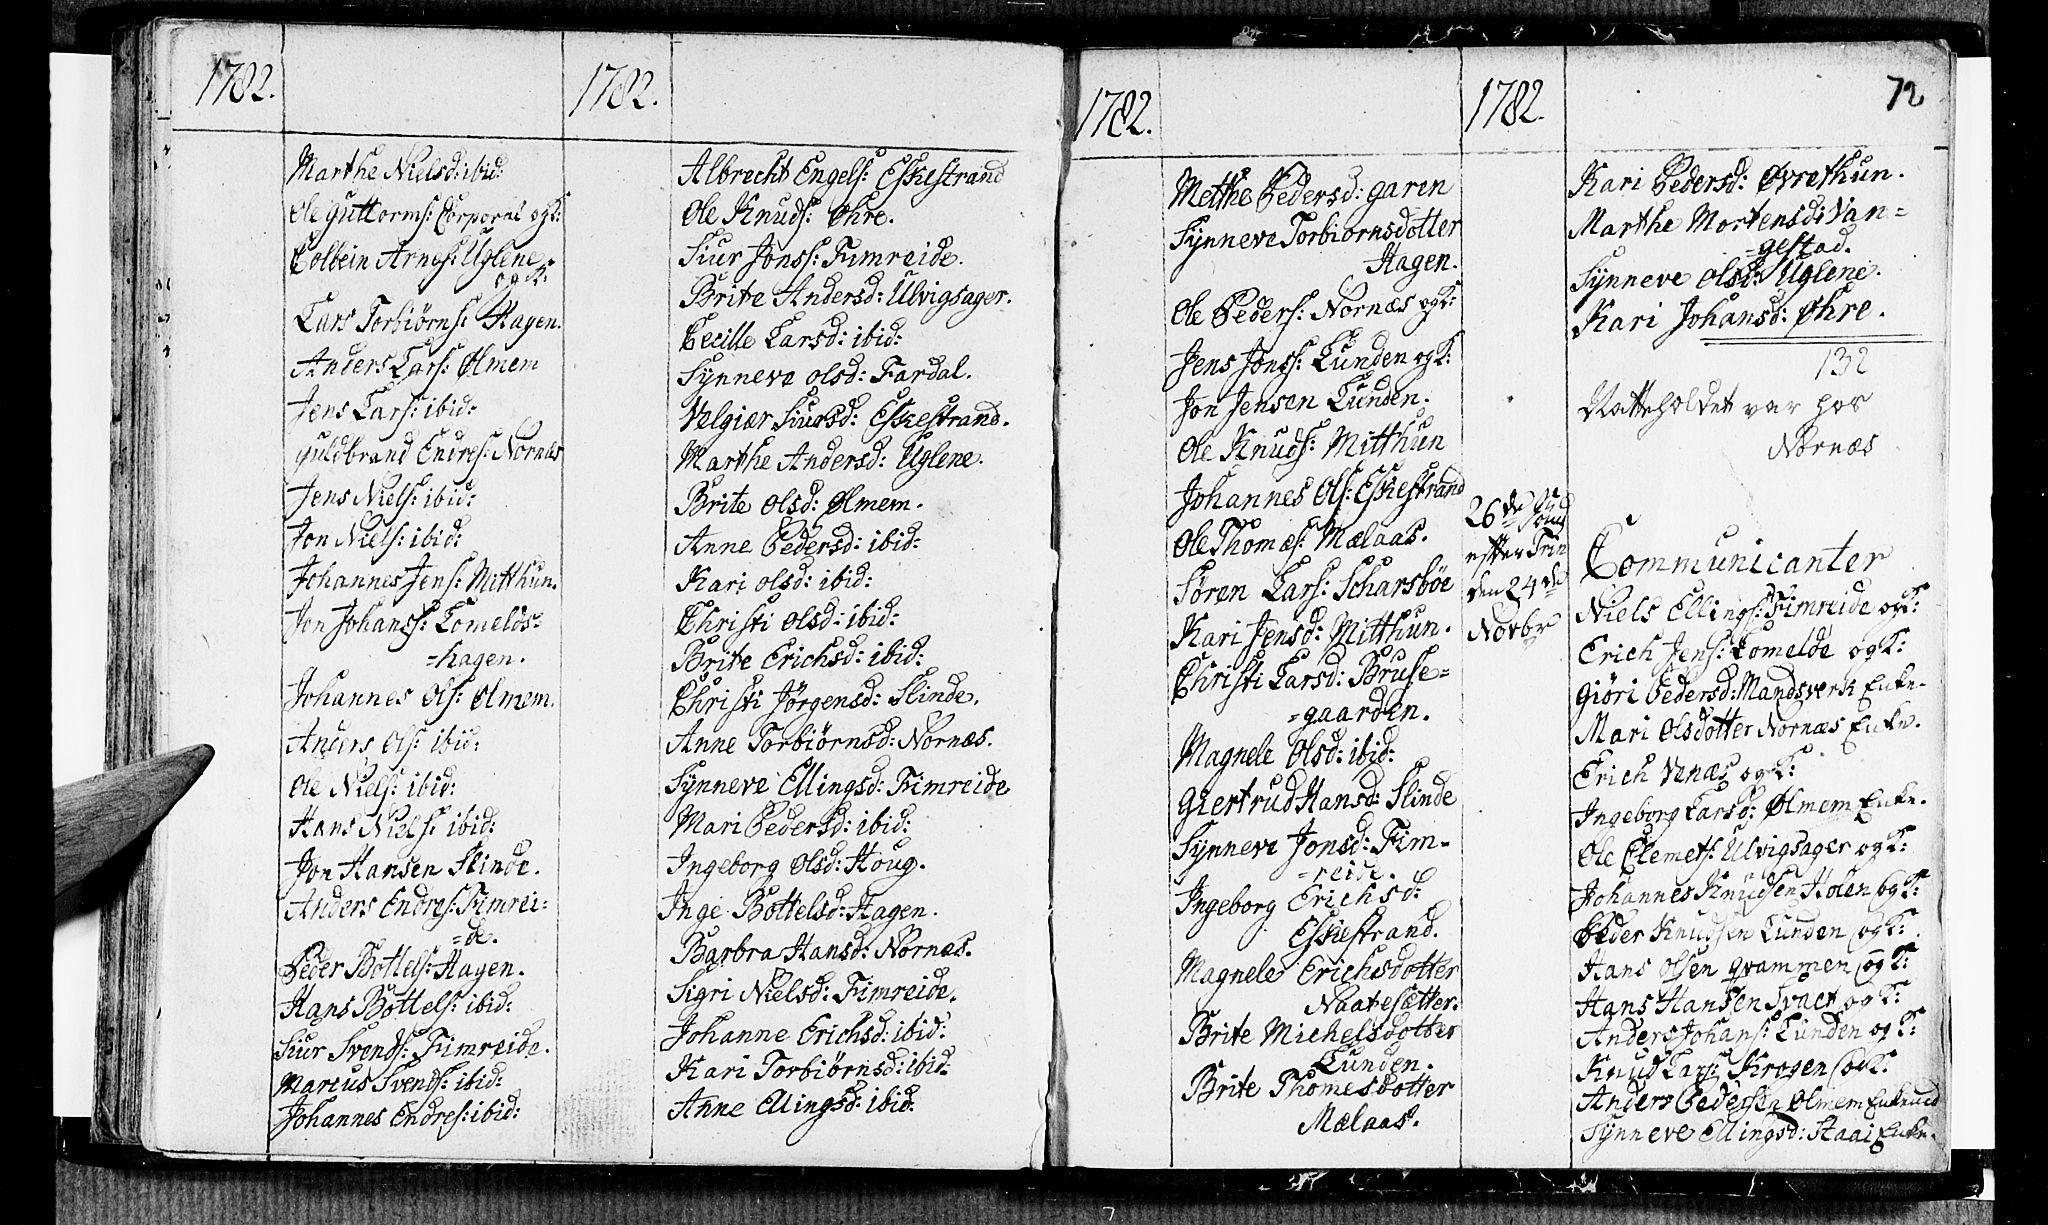 1782.
Marthe Nielsd: ibid:
Ole Guttorms: Corporal og K:
Colbein Arnes: Uglene
og K:
Lars Torbiörns: Hagen.
Anders Lars: Ølmem
Jens Lars: ibid:
Guldbrand Endres: Nornæs
Jens Niels: ibid:
Jon Niels: ibid:
Johannes Jens: Mitthun.
Jon Johans: Lomelds=
=hagen.
Johannes Ols: Ølmem.
Anders Ols: ibid:
Ole Niels: ibid:
Hans Niels: ibid:
Jon Hansen Slinde.
Anders Endres: Fimrei=
=de.
Peder Bottels: Hagen.
Hans Bottels: ibid:
Siur Svends: Fimreide.
Marcus Svends: ibid:
Johannes Endres: ibid:
1782.
Albrecht Engels: Eskestrand
Ole Knuds: Øhre.
Siur Jonss: Fimreide.
Brite Andersd: Ulvigsager.
Cecille Larsd: ibid:
Synneve Olsd: Fardal.
Velgiær Siursd: Eskestrand.
Marthe Andersd: Uglene.
Brite Olsd: Ølmem.
Anne Pedersd: ibid:
Kari Olsd: ibid:
Christi Olsd: ibid:
Brite Erichsd: ibid:
Christi Jörgensd: Slinde.
Anne Torbiörnsd: Nornæs.
Synneve Ellingsd: Fimreide
Mari Pedersd: ibid:
Ingeborg Olsd: Houg.
Inge Bottelsd: Hagen.
Barbra Hansd: Nornæs.
Sigri Nielsd: Fimreide.
Johanne Erichsd: ibid:
Kari Torbiörnsd: ibid:
Anne Ellingsd: ibid:
1782.
Metthe Pedersd: Garen
Synneve Torbiornsdotter
Hagen.
Ole Peders: Nornæs og K:
Jens Jons: Lunden og K:
Jon Jensen Lunden.
Ole Knuds: Mitthun
Johannes Ols: Eskestrand
Ole Thomæs: Mælaas.
Søren Lars: Scharsböe
Kari Jensd: Mitthun.
Christi Larsd: Bruse=
=gaarden.
Magnele Olsd: ibid:
Giertrud Hansd: Slinde
Synneve Jonsd: Fim-
=reide.
Ingeborg Erichsd:
Eskestrand.
Magnele Erichsdotter
Naatesetter.
Brite Michelsdotter
Lunden.
Brite Thomesdotter
Mælaas.
1782.
26de Sönd
efter Trin
den 24de
Novbr
72
Kari Pedersd: Øvrethun.
Marthe Mortensd: Van=
=gestad.
Synneve Olsd: Uglene.
Kari Johansd: Øhre.
132
Natteholdet var hos
Nornæs
Communicanter
Niels Ellings: Fimreide og K:
Erich Jens: Lomelde og K:
Giöri Pedersd: Mandsverk Enke.
Mari Olsdotter Nornæs Enke.
Erich Venæs og K:
Ingeborg Larsd: Ølmem Enke.
Ole Clemets: Ulvigsager og K:
Johannes Knudsen Holen og K:
Peder Knudsen Lunden og K:
Hans Olsen Qvammen og K:
Hans Hansen Svact og K:
Anders Johans: Lunden og K:
Knud Lars: Krogen og K:
Anders Pedersen Ølmem
Synneve Ellingsd: Haai Enke.